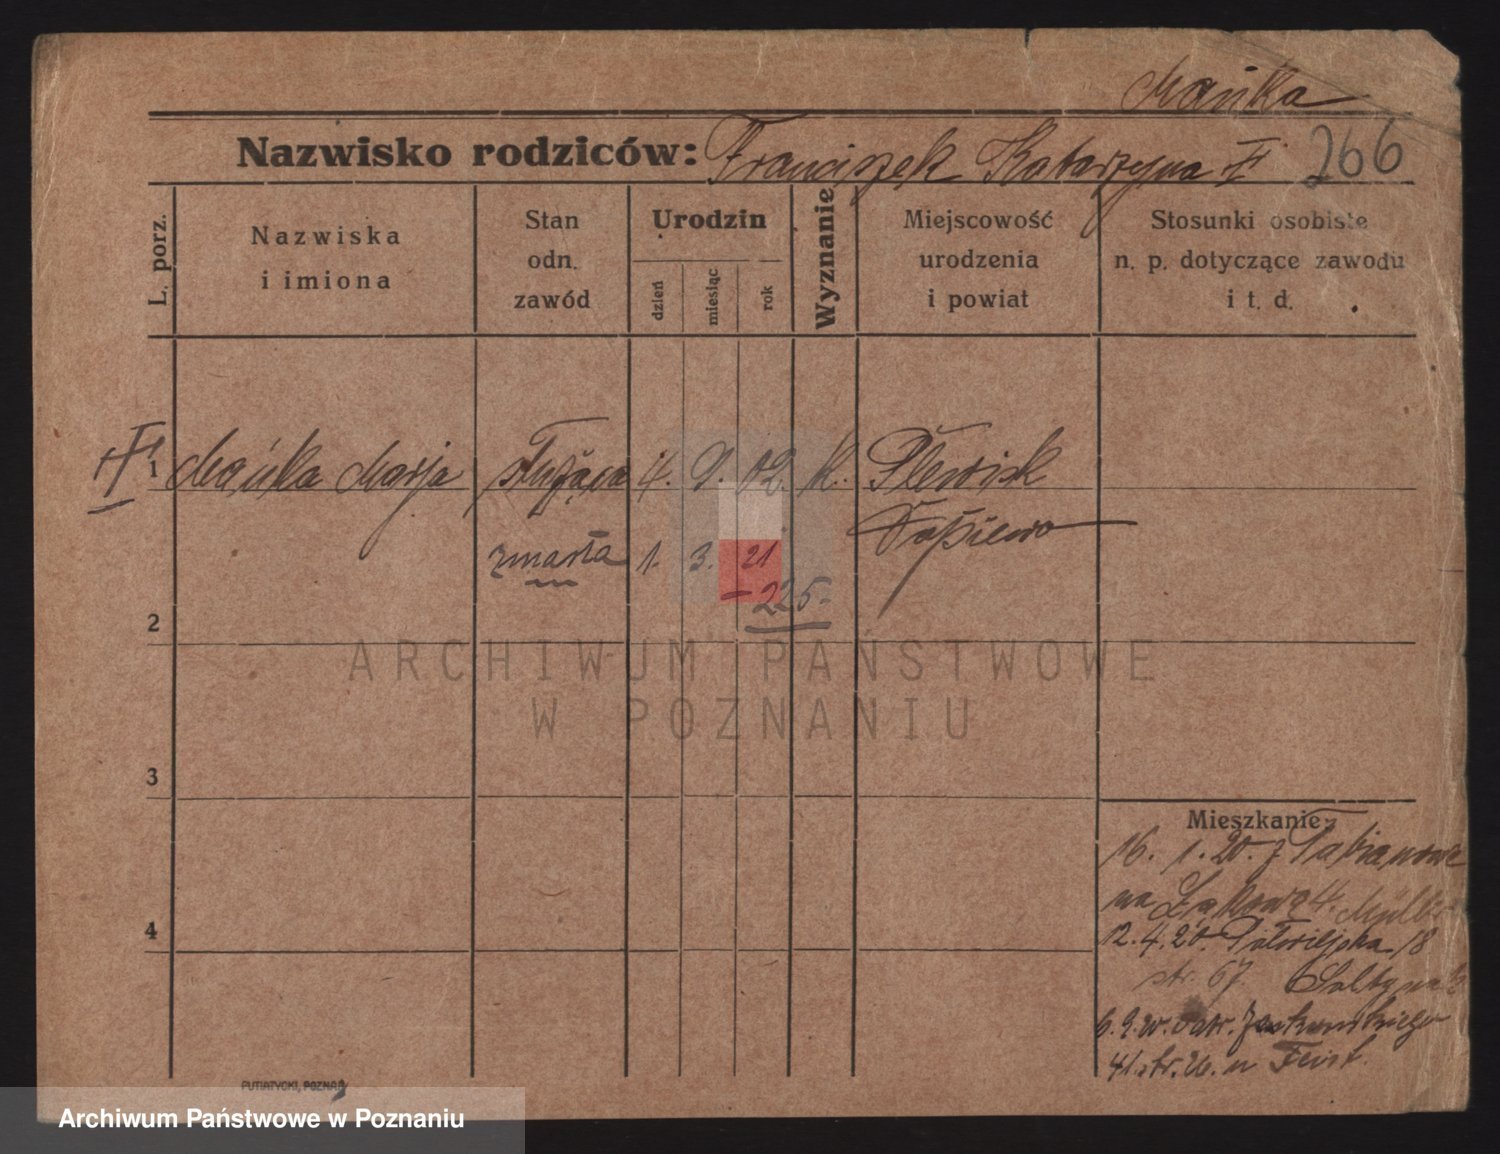 Mańka
Nazwisko rodziców: Franciszek Katarzyna
266
L. porz.
Nazwiska
i imiona
Stan
odn.
zawód
Urodzin
dzień
miesiąc
rok
Wyznanie
Miejscowość
urodzenia
i powiat
Stosunki osobiste
n. p. dotyczące zawodu
i t. d.
1 Mańka Marja służąca 4. 9. 02. k. Plewisk
zmarła 1. 3. 21
225.
2
ARCHIWUM PAŃSTWOWE
W POZNANIU
3
Mieszkanie:
16. 1. 20. z
na Łąkowa 4.
4
12. 4. 20. 18
str. 67.
41. str. u Feist.
PUTIATYCKI, POZNAŃ
Archiwum Państwowe w Poznaniu